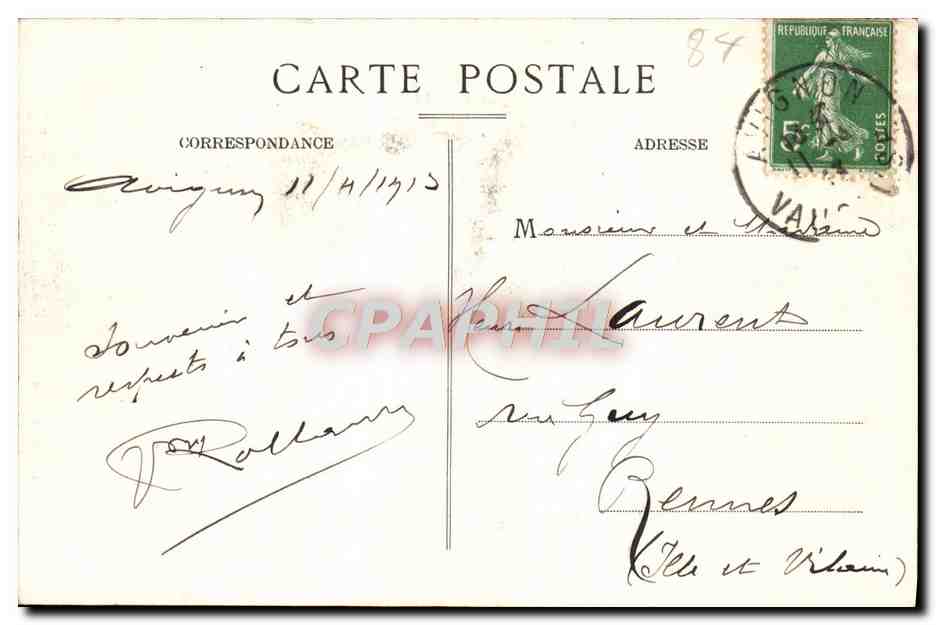 84
REPUBLIQUE FRANÇAISE
5c
POSTES
AVIGNON
VAUCLUSE
CARTE POSTALE
CORRESPONDANCE
ADRESSE
Avignon 11/4/1913
Monsieur et Madame
Henri Laurent
rue Guy
Rennes
(Ille et Vilaine)
Souvenir et
respects à tous
Rolland
CPAPHIL